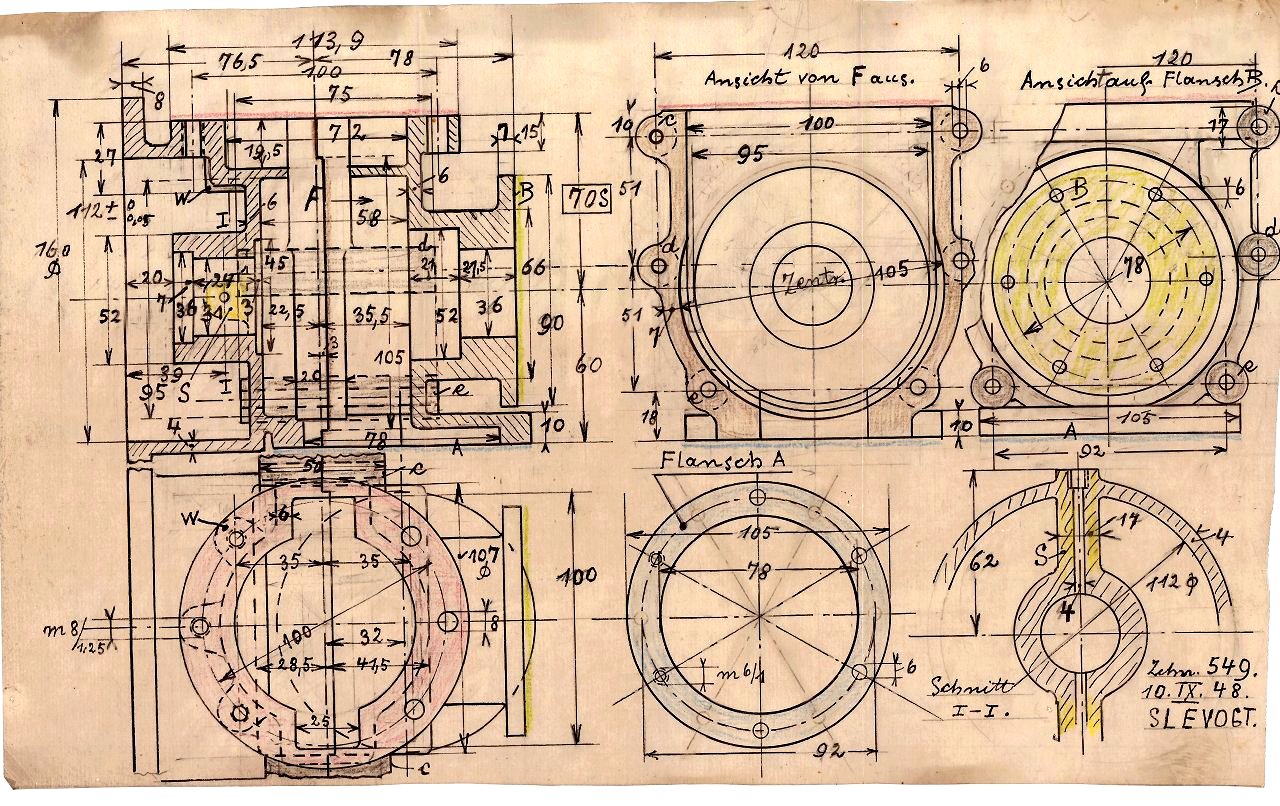 113,9
76,5
78
100
75
8
72
7
15
19,5
27
6
W
I
F
6
58
B
70S
112 ± 0
0,05
160
ø
d
45
21
21,5
66
20
27
7
36
34
3
22,5
35,5
52
36
52
90
3
39
105
60
95
S
I
20
e
4
78
A
10
120
Ansicht von F aus.
6
10
c
100
95
51
d
Zentr.
105
51
7
e
18
10
120
Ansicht auf Flansch B.
17
B
6
d
78
e
105
A
92
50
c
W
6
35
35
107
ø
100
m 8/
1,25
8
100
32
28,5
41,5
25
c
Flansch A
105
78
m 6/1
6
92
17
4
S
62
112 ø
4
Schnitt
I-I.
Zchn. 549.
10. IX. 48.
SLEVOGT.